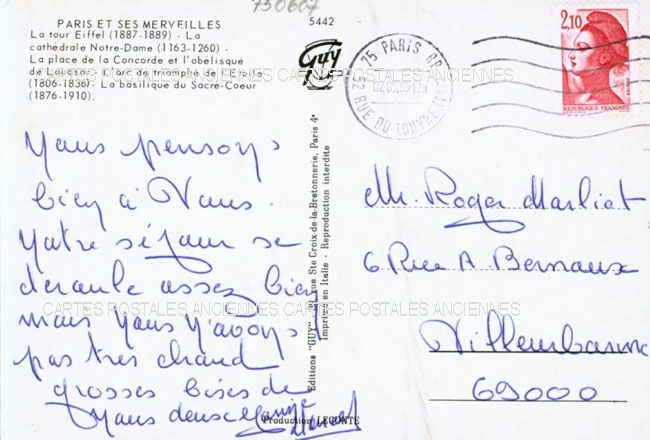 730607
PARIS ET SES MERVEILLES
La tour Eiffel (1887-1889) - La
cathédrale Notre-Dame (1163-1260) -
La place de la Concorde et l'obélisque
de Louqsor - L'arc de triomphe de l'Etoile
(1806-1836) - La basilique du Sacre-Coeur
(1876-1910).
5442
Guy
75 PARIS RP
52 RUE DU LOUVRE (1er)
2,10
REPUBLIQUE FRANÇAISE
CARTES POSTALES ANCIENNES CARTES POSTALES ANCIENNES
Nous pensons
bien à Vous.
Notre séjour se
déroule assez bien
mais nous n'avons
pas très chaud
grosses bises de
nous deux
CARTES POSTALES ANCIENNES CARTES POSTALES ANCIENNES
Editions "GUY" rue Ste Croix-de-la-Bretonnerie, Paris 4e
Imprimé en Italie - Reproduction interdite
Production LECONTE
Mr. Roger Marliat
6 Rue A Bernaux
Villeurbanne
69000